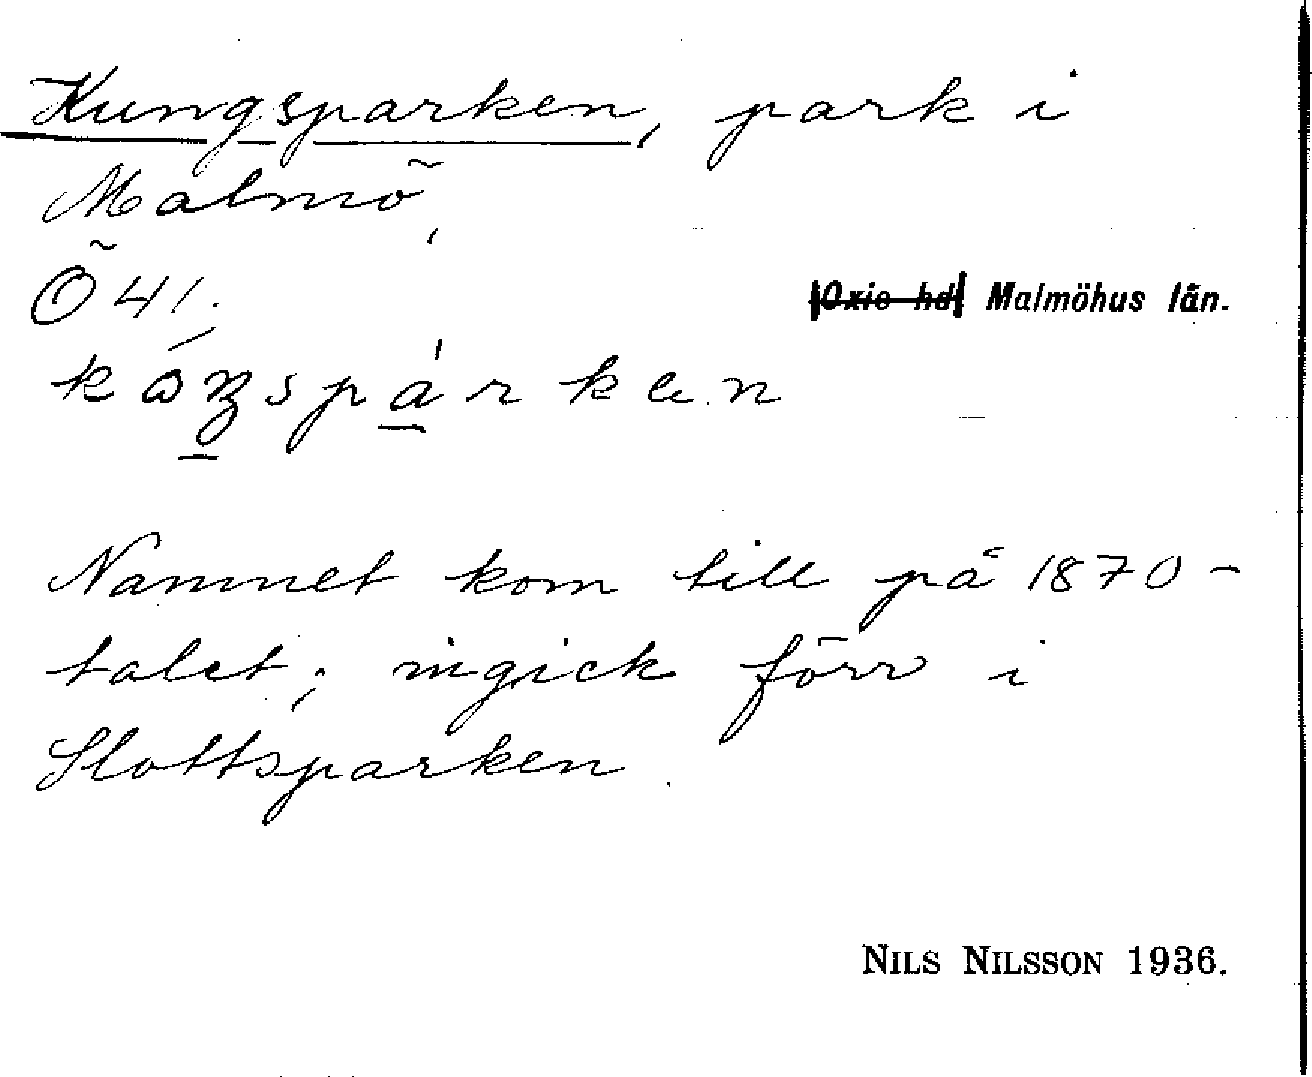 Kungsparken, park i
Malmö,
Ö 41.
Oxie hd Malmöhus län.
Namnet kom till på 1870-
talet; ingick förr i
Slottsparken.
NILS NILSSON 1936.